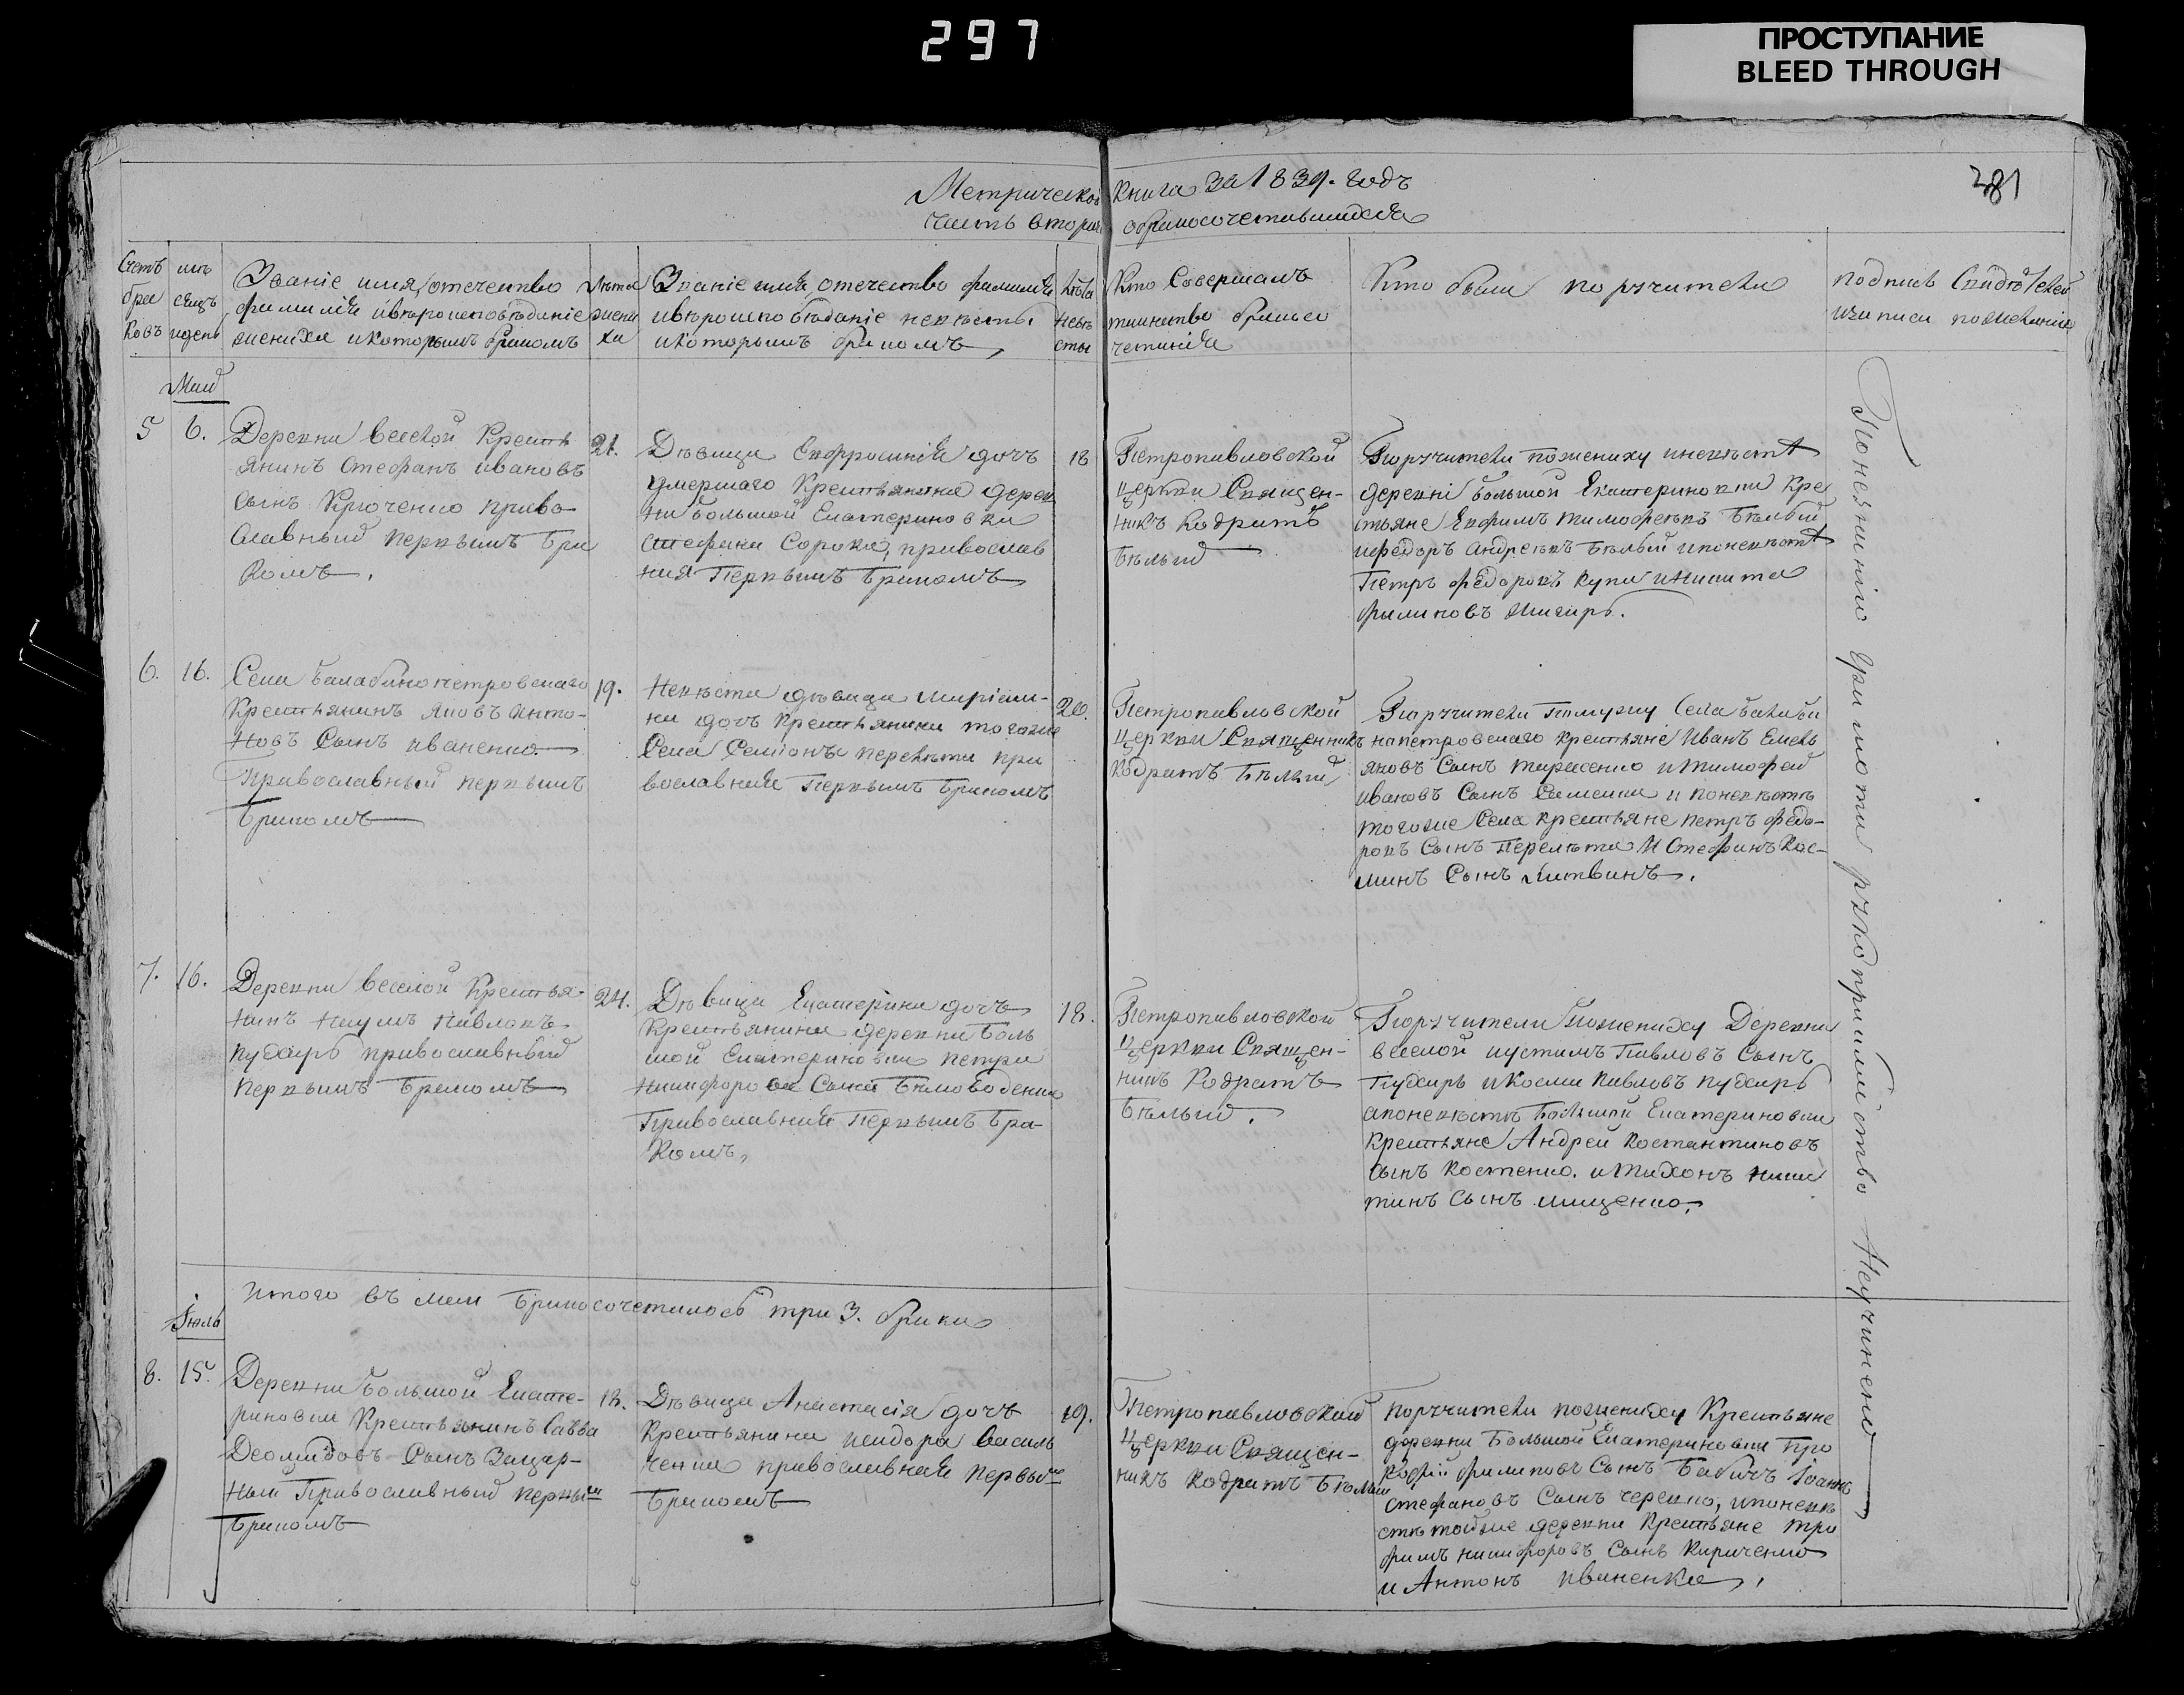 297
ПРОСТУПАНИЕ
BLEED THROUGH
281
Метрической книга за 1839. годъ
Часть вторая о бракосочетавшихся
Счетъ браковъ
мѣсяцъ и день
Званіе имя, отечество
фамилія и вѣроисповѣданіе
жениха и которымъ бракомъ
Лѣта
жени
ха
Званіе имя, отечество фамилія
и вѣроисповѣданіе невѣсты
и которымъ бракомъ,
Лѣта
невѣ
сты
Кто совершалъ
таинство бракосо
четанія
Кто были поручители
подпись свидѣтелей
записи по желанію
Май
5
6.
Деревни веселой Кресть
янинъ Стефанъ Ивановъ
сынъ Крюченко право
славный первымъ бра
комъ.
21.
Дѣвица Евфросинія дочь
умершаго Крестьянина дерев
ни большой Екатериновки
Стефана Сорока, православ
ная первымъ бракомъ
18
Петропавловской
церкви Священ-
никъ Кодратъ
Бѣлый
Поручители по жениху и невѣстѣ
деревни большой Екатериновки Кре
стьяне Ефимъ Тимофеевъ Бѣлый
и федоръ Андреевъ Бѣлый и по невѣстѣ
Петръ федоровъ Купа и Никита
филиповъ
6.
16.
Села Балабинопетровскаго
Крестьянинъ Яковъ Анто-
новъ Сынъ Иваненко
Православный первымъ
бракомъ
19.
Невѣста дѣвица Маріам-
на дочь крестьянина тогоже
Села Семіона Перелета пра
вославная первымъ бракомъ
20.
Петропавловской
церкви Священникъ
Кодратъ Бѣлый
Поручители по мужу Села Балаби
напетровскаго крестьяне Иванъ Емель
яновъ Сынъ Тарасенко и Тимофей
Ивановъ Сынъ и по невѣстѣ
тогоже Села крестьяне Петръ федо-
ровъ Сынъ Перелета и Стефанъ Кос-
минъ Сынъ Литвинъ.
7.
16.
Деревни веселой Крестья-
нинъ Наумъ Павловъ
Пухырь православный
первымъ бракомъ
24.
Дѣвица Екатерина дочь
Крестьянина деревни Боль
шой Екатериновки Петра
Никифорова Сына Бѣловоденко
Православная первымъ бра-
комъ,
18.
Петропавловской
Церкви Священ-
никъ Кодратъ
Бѣлый.
Поручители по жениху Деревни
веселой Иустимъ Павловъ Сынъ
Пухырь и Косма Павловъ Пухырь
а по невѣстѣ Большой Екатериновки
Крестьяне Андрей Костантиновъ
Сынъ Костенко. и Тихонъ Ники
тинъ Сынъ Мищенко.
Итого въ маи бракосочеталось три 3. брака
Іюль
8.
15.
Деревни большой Екате-
риновки Крестьянинъ Савва
Деомидовъ Сынъ Зацар-
ный Православный первымъ
бракомъ
18.
Дѣвица Анастасія дочь
Крестьянина Исидора Василь
ченка православная первымъ
бракомъ
19.
Петропавловской
Церкви Священ-
никъ Кодратъ Бѣлый
Поручители по жениху Крестьяне
деревни Большой Екатериновки Про
кофій филиповъ Сынъ Бабичъ Іоаннъ
Стефановъ Сынъ Черевко, и по невѣ
стѣ тойже деревни Крестьяне Тро
фимъ Никифоровъ Сынъ Кириченко
и Антонъ Иваненко.
По незнанію грамоти рукоприкладство неучинено